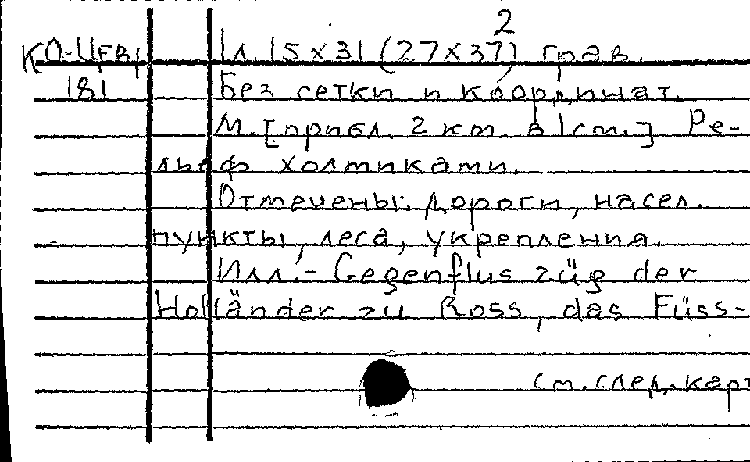 2
КО-Цевр 1л. 15х31 (27х37) грав.
181 Без сетки и координат.
М. [прибл. 2 км. в 1 см.] Ре-
льеф холмиками.
Отмечены: дороги, насел.
пункты, леса, укрепления.
Илл.- Gegenflus züg der
Holländer zu Ross, das Füss-
см. след. карт